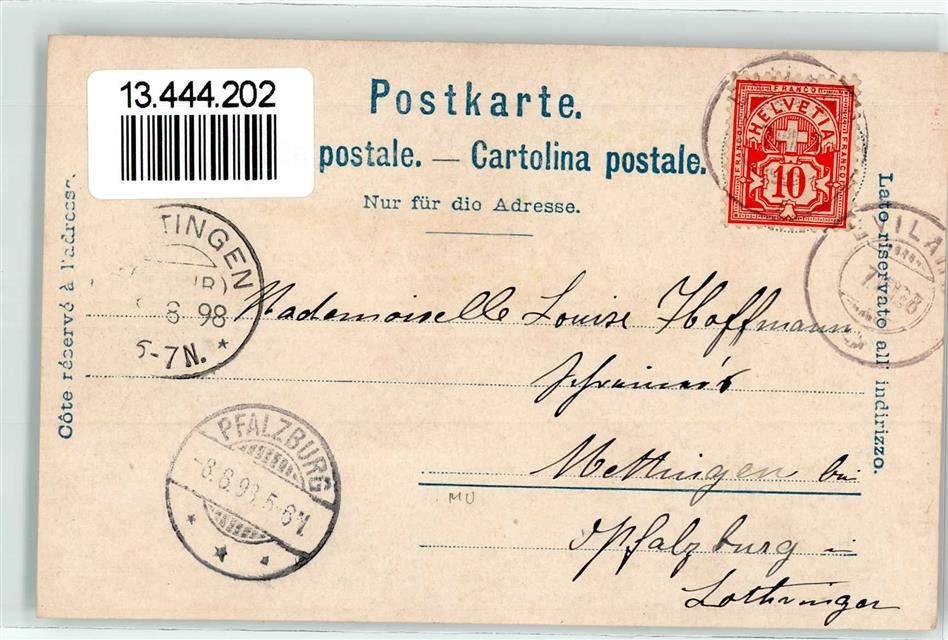 13.444.202
Postkarte.
postale. — Cartolina postale.
Nur für die Adresse.
Côte réservé à l'adresse.
Lato riservato all' indirizzo.
FRANCO
HELVETIA
FRANCO
FRANCO
10
TINGEN
8 98
5-7N.
Mademoiselle Louise Hoffmann
Mettingen bei
Pfalzburg in
Lothringen
PFALZBURG
-8.8.98.5-6N.
MU